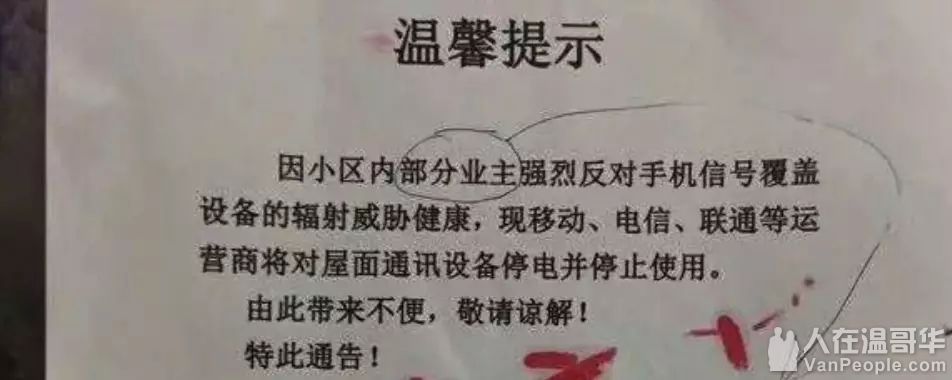 温馨提示
因小区内部分业主强烈反对手机信号覆盖
设备的辐射威胁健康，现移动、电信、联通等运
营商将对屋面通讯设备停电并停止使用。
由此带来不便，敬请谅解！
特此通告！
人在温哥华
VanPeople.com